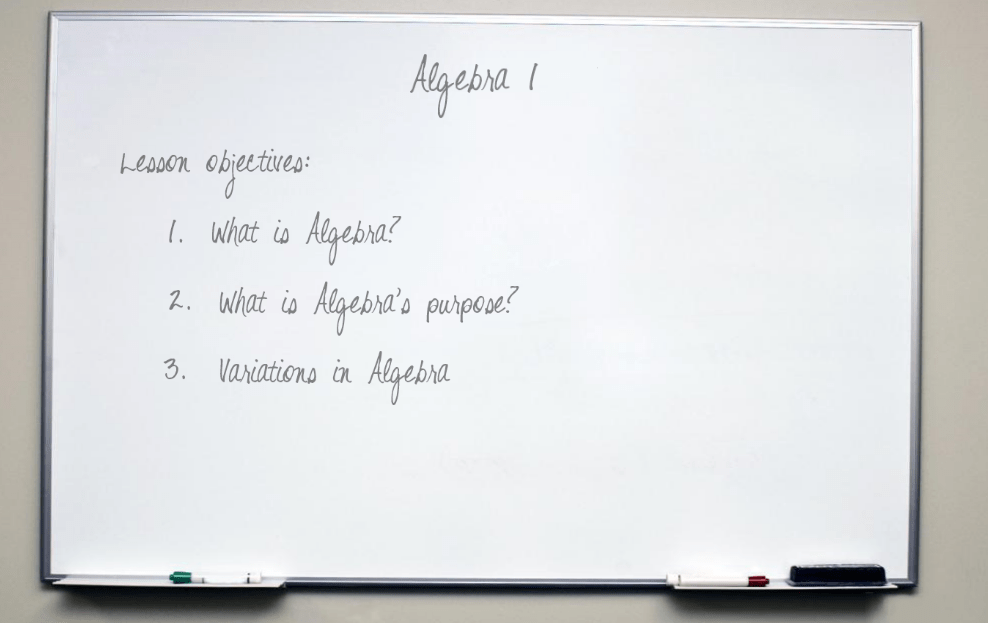 Algebra 1
Lesson objectives:
1. What is Algebra?
2. What is Algebra's purpose?
3. Variations in Algebra